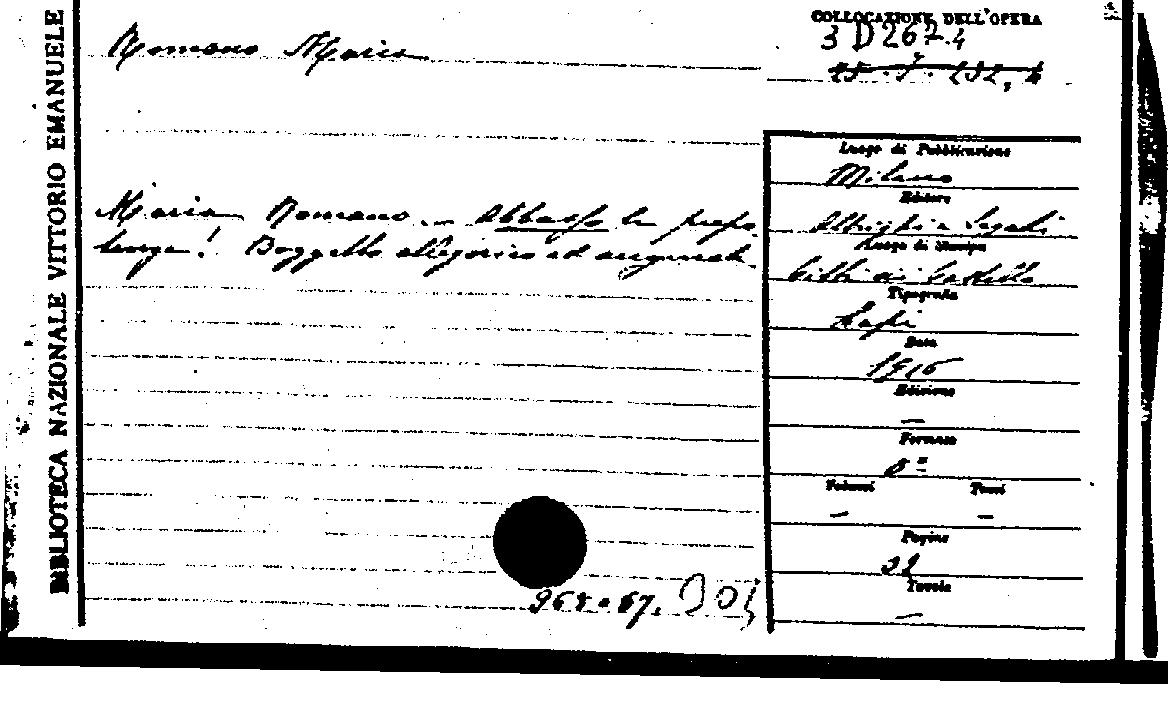 BIBLIOTECA NAZIONALE VITTORIO EMANUELE
COLLOCAZIONE DELL'OPERA
3 D 267.4
Romano Maria
Maria Romano. — Abbasso la prepo
tenza! Bozzetto allegorico ed augurale
Luogo di Pubblicazione
Milano
Editore
Albrighi e Segati
Luogo di Stampa
Città di Castello
Tipografia
Lapi
Data
1916
Edizione
—
Formato
8º
Volumi Tomi
— —
Pagine
32
Tavole
—